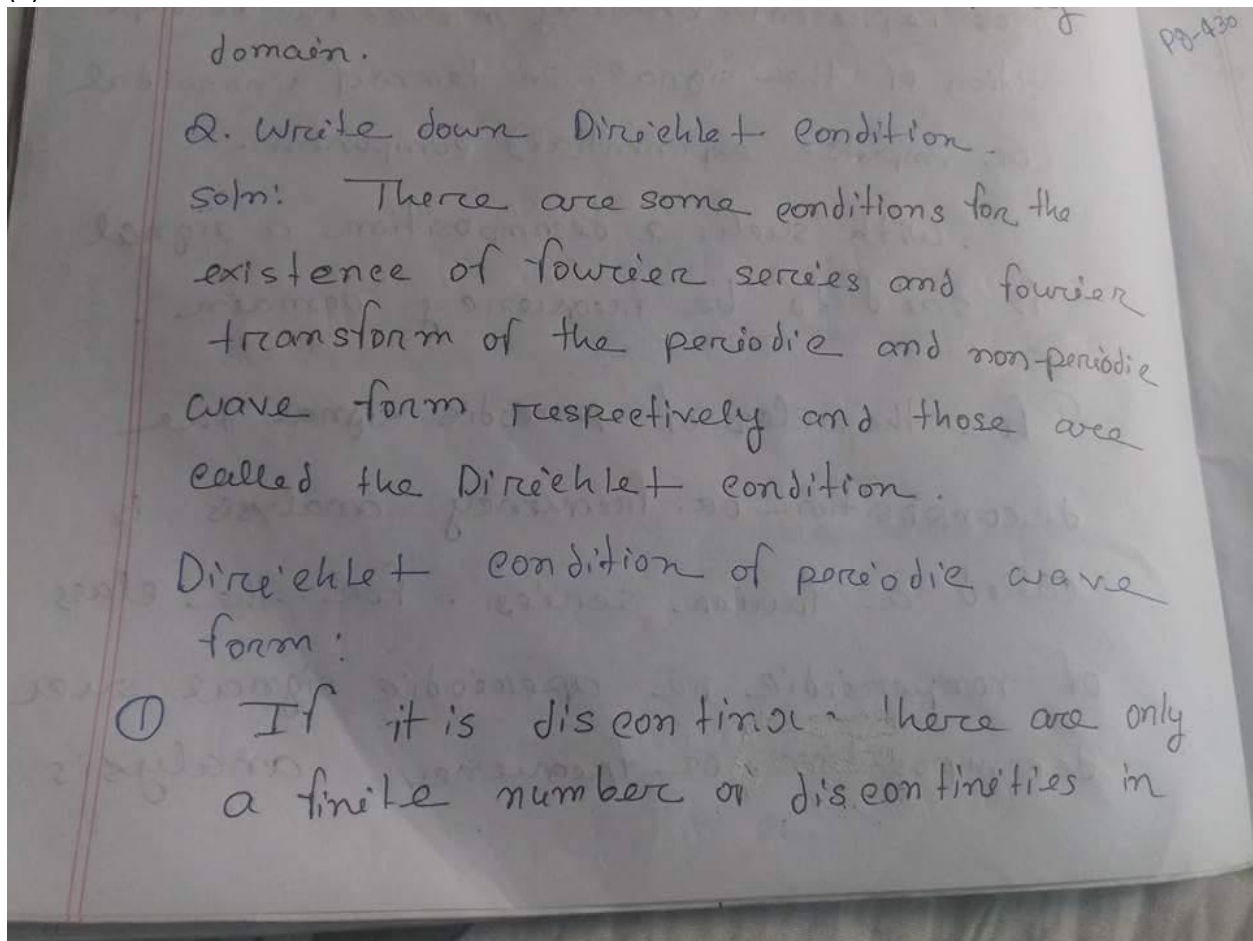 Pg-430
domain.
Q. Write down Dirichlet condition.
soln: There are some conditions for the
existence of fourier series and fourier
transform of the periodic and non-periodic
wave form respectively and those are
called the Dirichlet condition.
Dirichlet condition of periodic wave
form:
① If it is discontinu there are only
a finite number of discontinities in